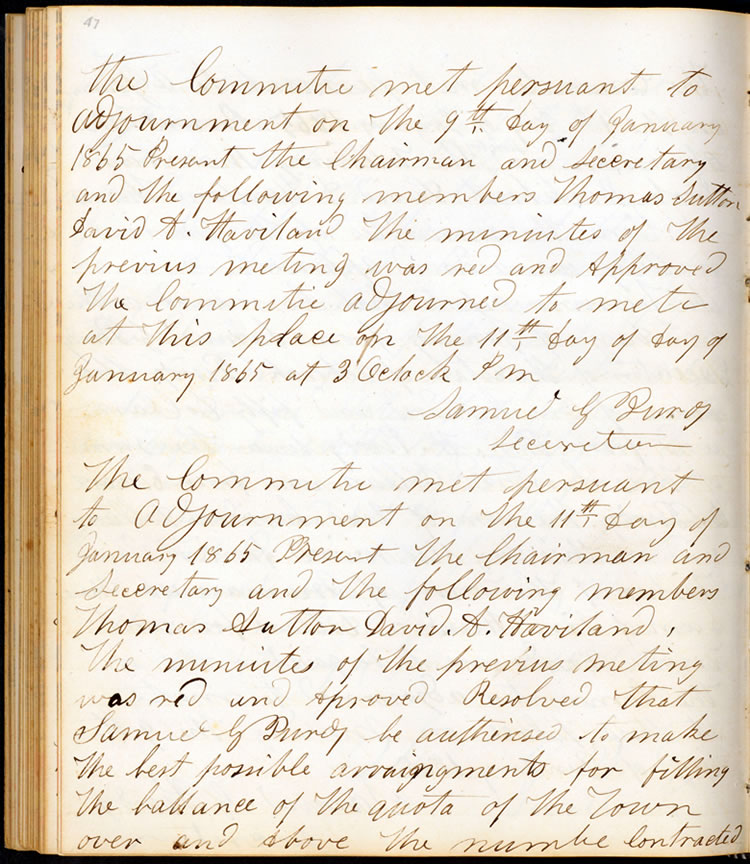 47
the Committie met persuant to
adjournment on the 9th day of January
1865 Present the Chairman and Secretary
and the following members Thomas Sutton
David A. Haviland the miniutes of the
previus meting was red and Approved
the Committie adjourned to mete
at this place on the 11th day of day of
January 1865 at 3 Oclock P m
Samuel G Purdy
The Committie met persuant
to adjournment on the 11th day of
January 1865 Present the Chairman and
Secretary and the following members
Thomas Sutton David. A. Haviland,
the miniutes of the previus meting
was red and Aproved Resolved that
Samuel G Purdy be autherised to make
the best possible arraingments for filling
the ballance of the quota of the Town
over and above the numbe Contracted